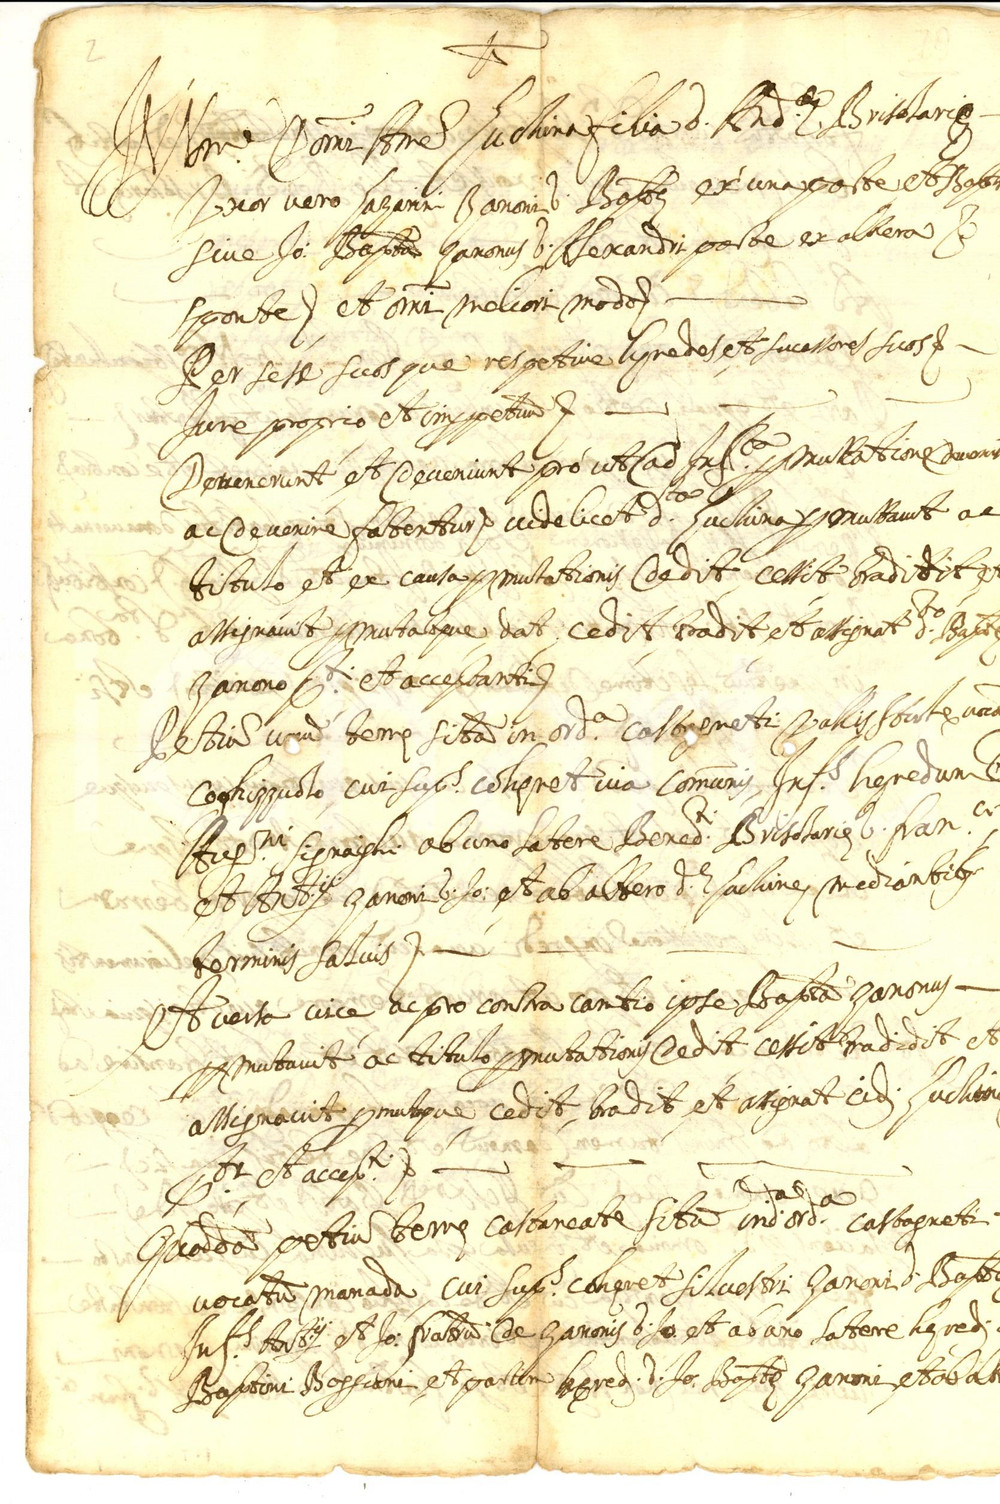 2
Nne Domi Ame Zuchina filia d. And.æ Brisolariæ
Uxor vero Lazarini Zanoni q. Baptæ ex una parte et Bapt
sive Jo: Bapta Zanonus q. Alexandri parte ex altera
sponte) et omi meliori modo)
Per se se suosque respetive hæredes et sucessores suos)
Jure proprio et imppetuũ)
Devenerunt et deveniunt pro ut ad Inf.tã pmuttatione
ac devenire fatentur) videlicet d.ta Zuchina pmuttavit ac
titulo et ex causa pmutationis dedit cessit tradidit et
assignavit pmutatque, dat, cedit, tradit, et assignat d.to Bapt
Zanono p.ti et acceptanti)
Petiũ unũ terræ sitã in ord.a Castgneti Vallis
coghizzuolo, cui sup.s cohæret via comunis, Inf.s hæredum
signaighi ab uno latere Bened.ti Brisolariæ q. Fran.ci
et Ant.ij Zanoni q. Jo: et ab altero d.æ Zuchine, mediantibs
terminis salvis)
Et versa vice ac pro contra cambio ipse Bapta Zanonus
pmutavit ac titulo pmutationis dedit cessit tradidit et
assignavit pmutque, cedit, tradit, et assignat eid. Zuchine
p.ti et accep.ti)
Quoddã petiũ terræ castaneate sitũ in d.a ord.a castagneti
vocatũ manada, cui sup.s cohæret silvestri Zanoni q. Baptæ
Inf.s Ant.ij et Jo: fratrũ de Zanonis q. Jo. et ab uno latere hæred.
Baptini Bossioni et partim hæred. q. Jo. Baptæ Zanoni, et ab alt